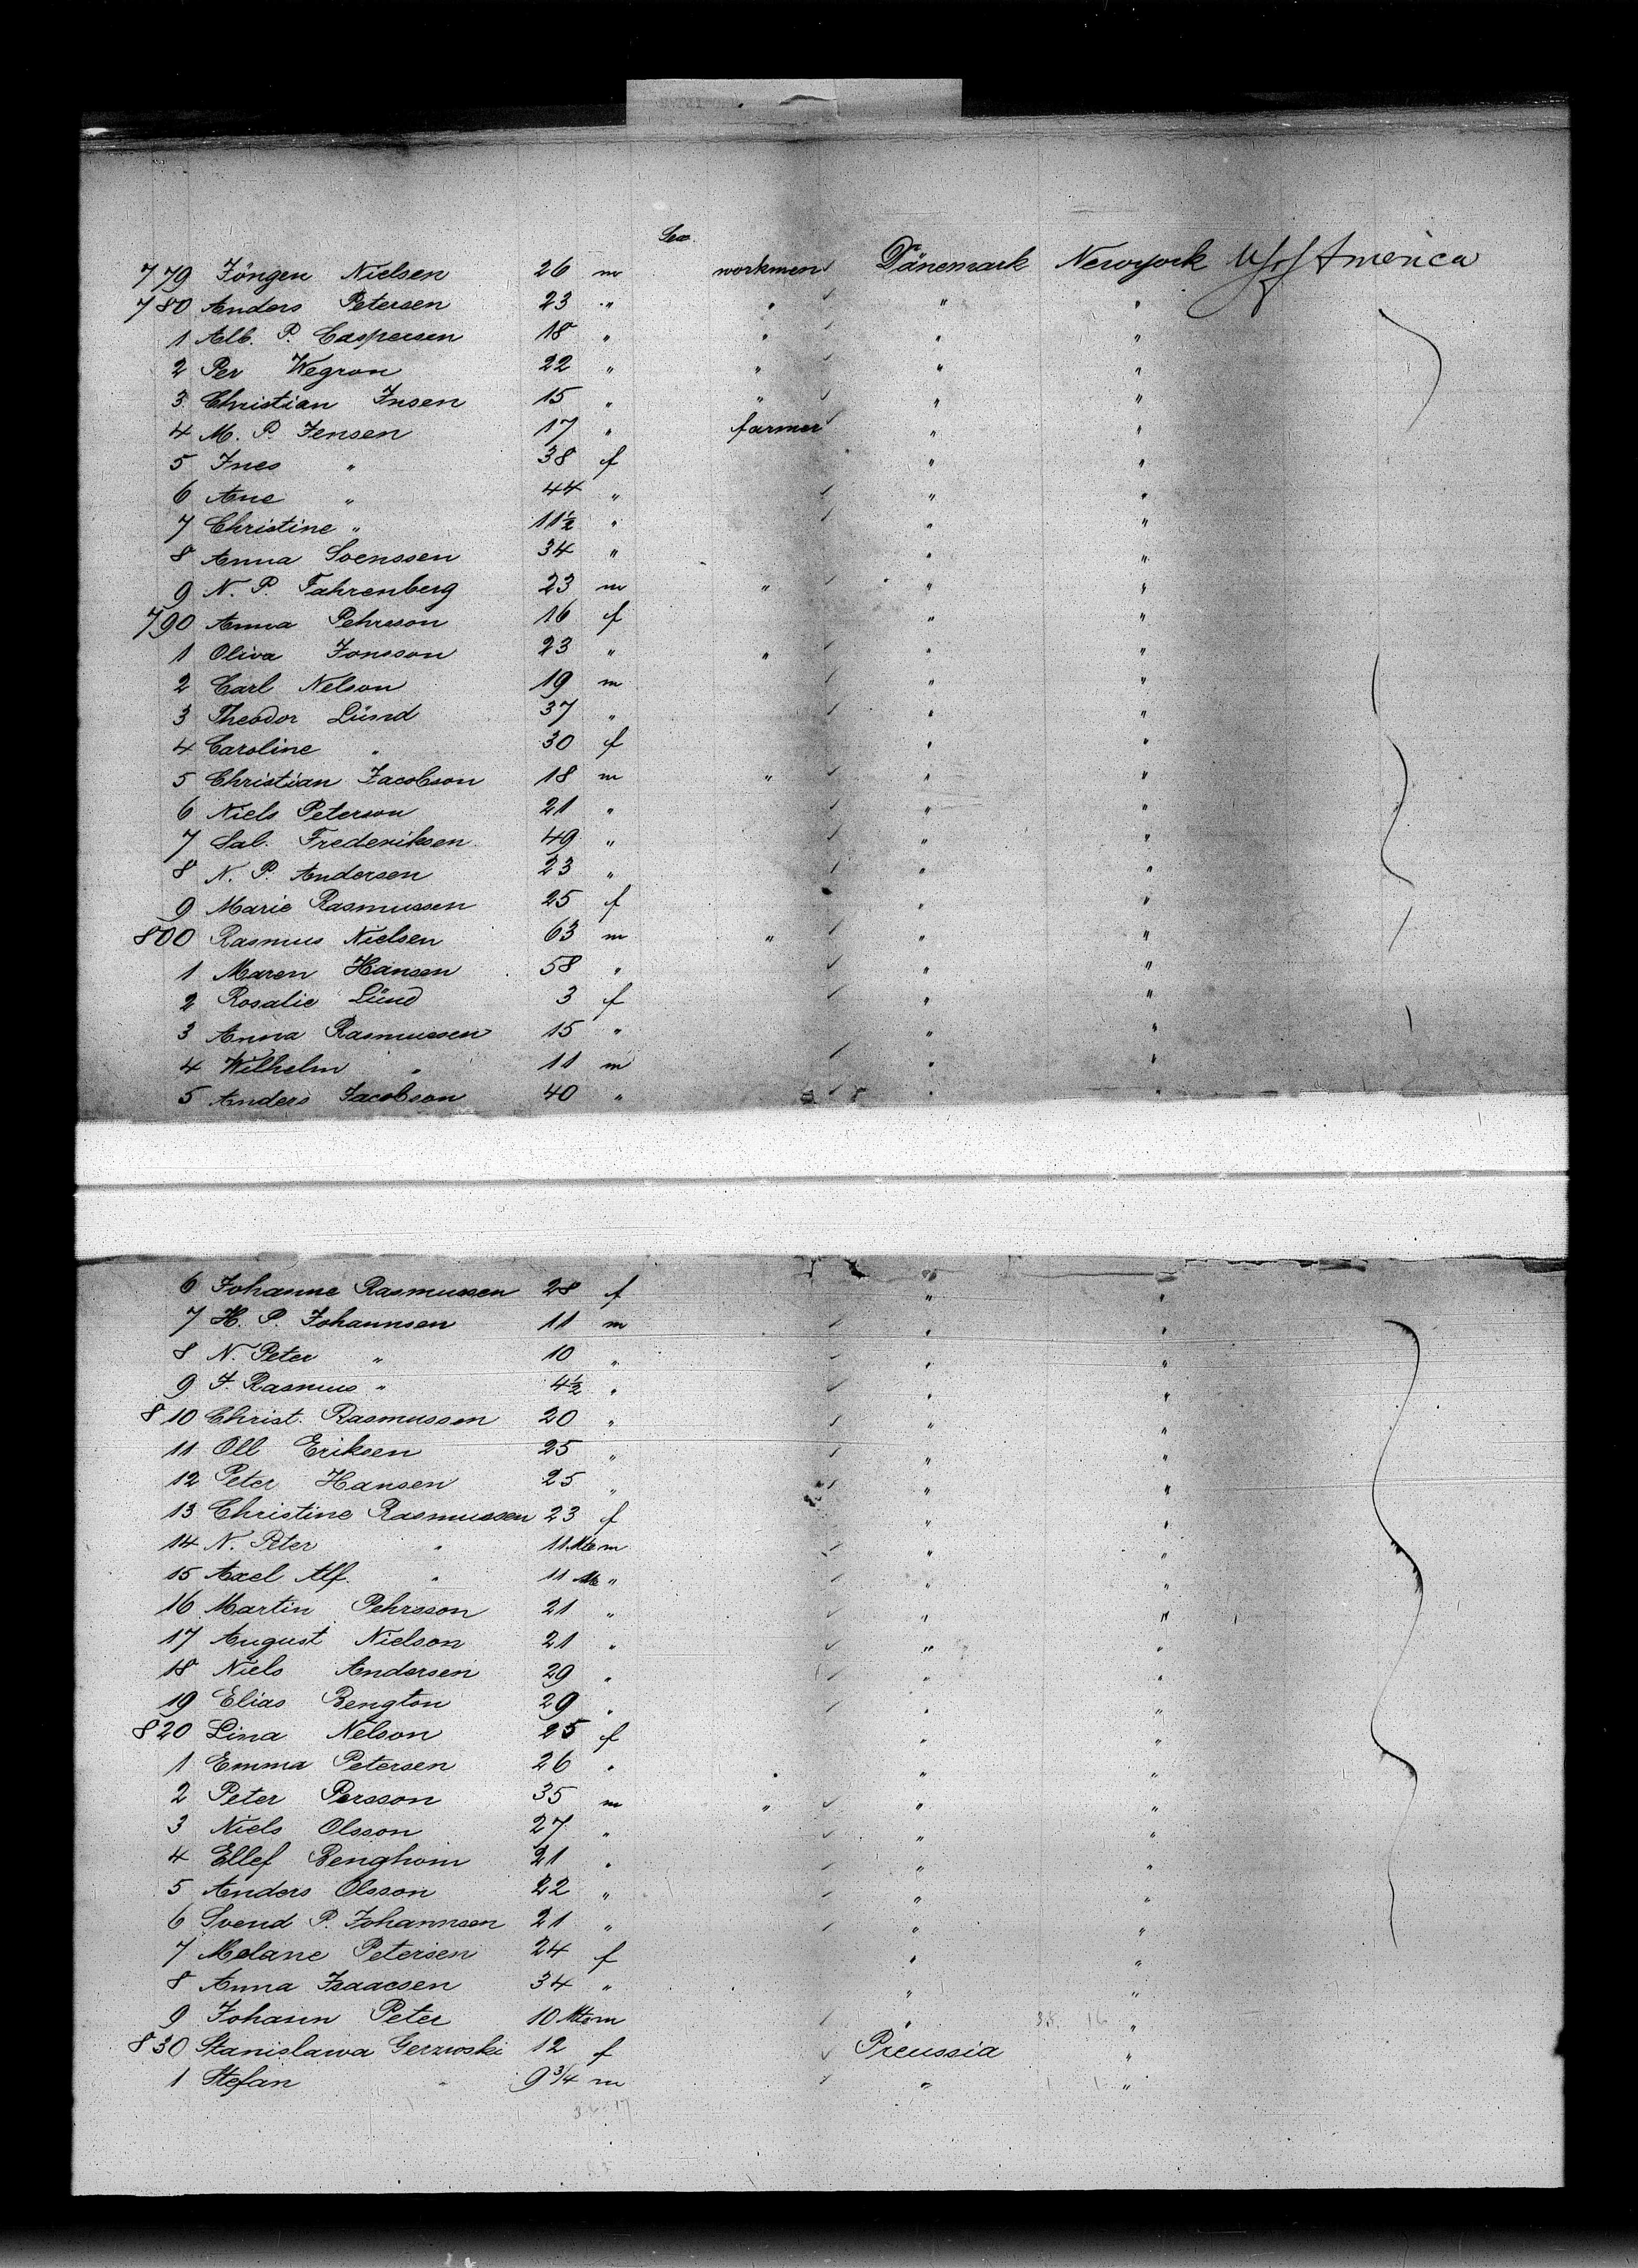 Sex
779 Jöngen Nielsen 26 m workmen Dänemark Newyork U S of America
780 Anders Petersen 23 " " " "
1 Alb. P. Caspersen 18 " " " "
2 Per Wegron 22 " " " "
3 Christian Insen 15 " " " "
4 M. P. Jensen 17 " farmer " "
5 Ines " 38 f " "
6 Ane " 44 " " "
7 Christine " 11½ " " "
8 Anna Svenssen 34 " " "
9 N. P. Fahrenberg 23 m " " "
790 Anna Pehrsson 16 f " "
1 Oliva Jonsson 23 " " " "
2 Carl Nelson 19 m " "
3 Theodor Lünd 37 " " "
4 Caroline " 30 f " "
5 Christian Jacobson 18 m " " "
6 Niels Peterson 21 " " "
7 Sal. Frederiksen 49 " " "
8 N. P. Andersen 23 " " "
9 Marie Rasmussen 25 f " "
800 Rasmus Nielsen 63 m " " "
1 Maren Hansen 58 " " "
2 Rosalie Lünd 3 f " "
3 Anna Rasmussen 15 " " "
4 Wilhelm " 11 m " "
5 Anders Jacobson 40 " " "
6 Johanne Rasmussen 28 f " "
7 H. P. Johannsen 11 m " "
8 N. Peter " 10 " " "
9 J. Rasmus " 4½ " " "
810 Christ. Rasmussen 20 " " "
11 Oll Eriksen 25 " " "
12 Peter Hansen 25 " " "
13 Christine Rasmussen 23 f " "
14 N. Peter " 11 Mte m " "
15 Axel Alf. " 11 Mte " " "
16 Martin Pehrsson 21 " " "
17 August Nielson 21 " " "
18 Niels Andersen 29 " " "
19 Elias Bengton 29 " " "
820 Lina Nelson 25 f " "
1 Emma Petersen 26 " " "
2 Peter Persson 35 m " " "
3 Niels Olsson 27 " " "
4 Ellef Benghom 21 " " "
5 Anders Olsson 22 " " "
6 Svend P. Johannsen 21 " " "
7 Melane Petersen 24 f " "
8 Anna Isaacsen 34 " " "
9 Johann Peter 10 Mte m " "
830 Stanislawa Gerzwoski 12 f Preussia "
1 Stefan " 9¾ m " "